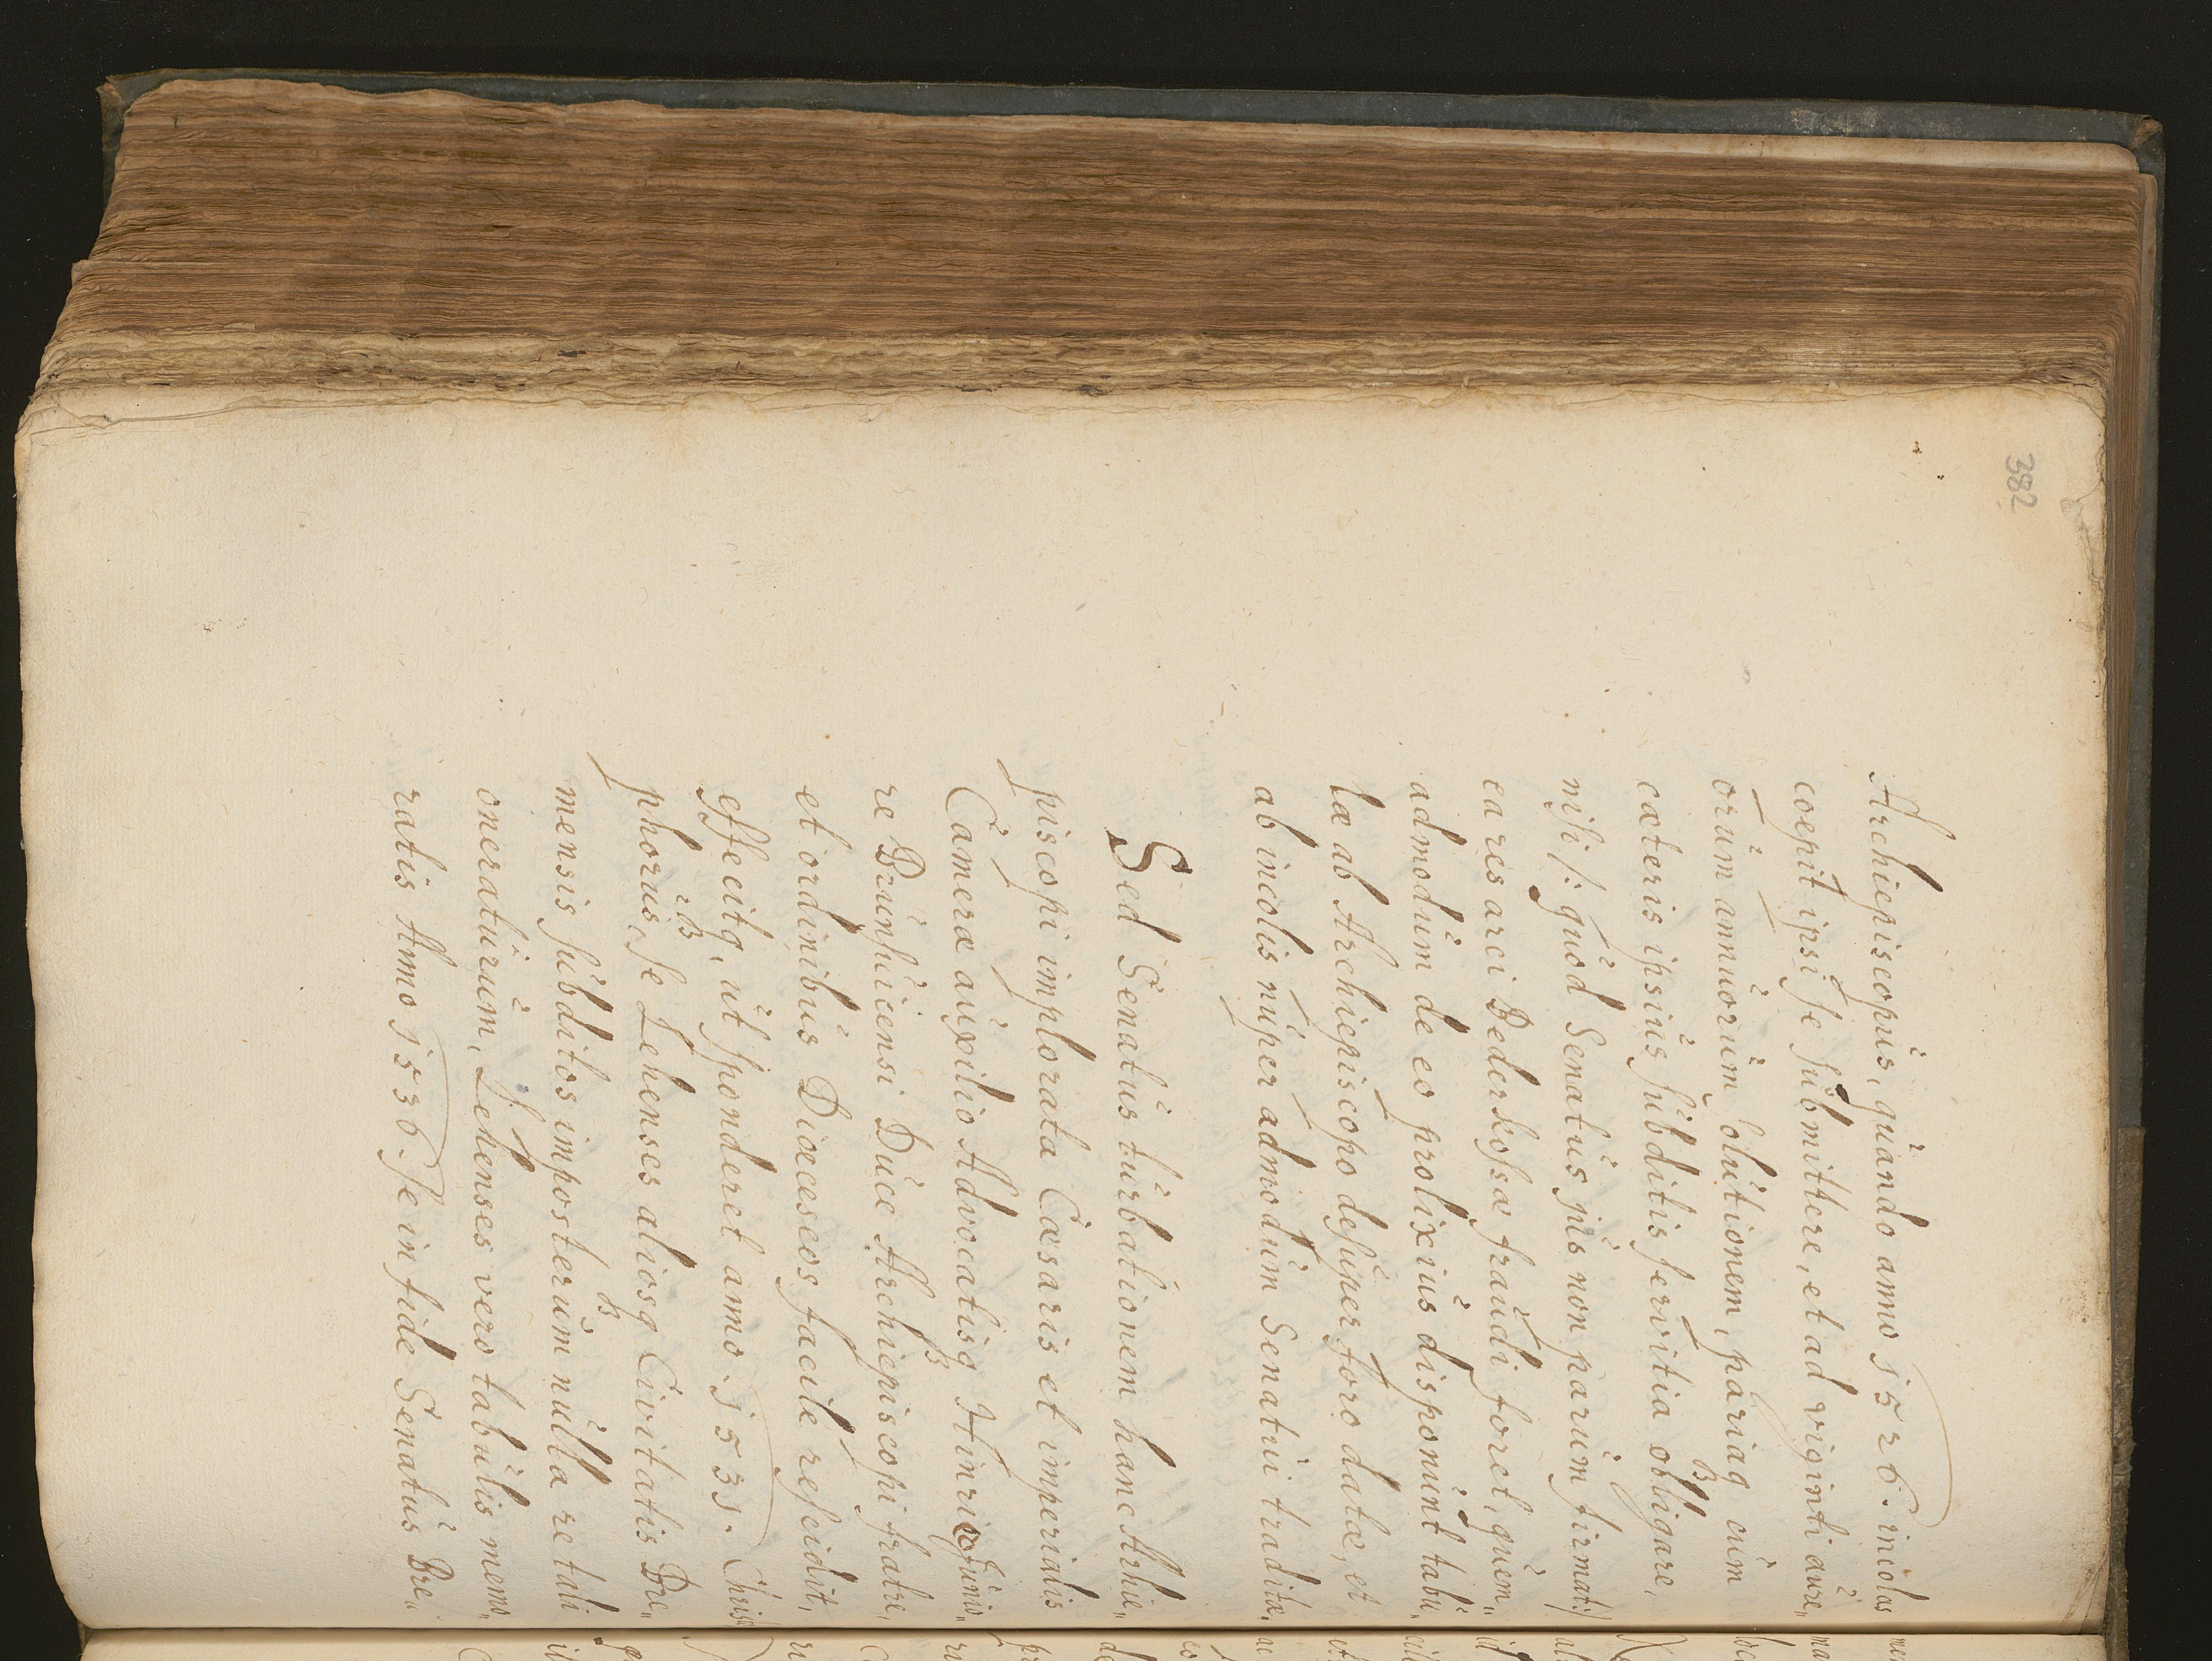 382
Archiepiscopus, quando anno 1526. incolas
coepit ipsi se submittere, et ad viginti aure„
orum annuorum solutionem, pariaq3 cum
cæteris ipsius subditis servitia obligare,
nisi /: quod Senatus jus non parum firmat:/
ea res arci Bederkosæ fraudi foret, quem„
admodum de eo prolixius disponunt tabu„
læ ab Archiepiscopo desuper foro datæ, et
ab incolis nuper admodum Senatui traditæ.
Sed Senatus turbationem hanc Archie„
piscopi implorata Cæsaris et imperialis
Cameræ auxilio Advocatisq3 Hinrico Junio„
re Brunsuicensi Duce Archiepiscopi fratre,
et ordinibus Dioeceseos facile rescidit,
effecitq, ut sponderet anno. 1531. Chris
phorus, se Lehenses aliosq3 Civitatis Bre„
mensis subditos imposterum nulla re tali
oneraturum, Lehenses vero tabulis memo„
ratis Anno 1536. se in fide Senatus Bre„